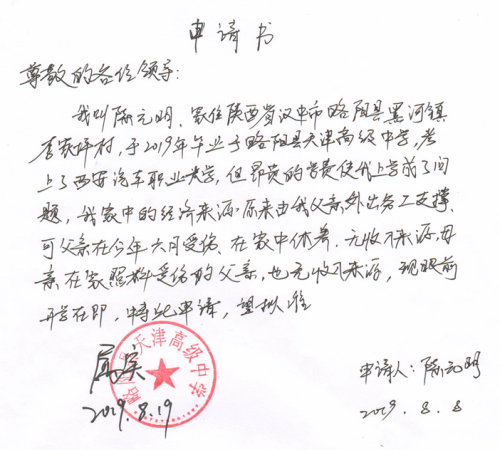 申请书
尊敬的各位领导:
我叫陈元明、家住陕西省汉中市略阳县黑河镇
李家坪村,于2019年毕业于略阳县天津高级中学,考
上了西安汽车职业大学,但昂贵的学费使我上学成了问
题,我家中的经济来源原来由我父亲外出务工支撑、
可父亲在今年六月受伤、在家中休养、无收入来源,母
亲在家照料受伤的父亲,也无收入来源,现眼前
开学在即,特此申请,望批准
属实
略阳县天津高级中学
2019.8.19
申请人:陈元明
2019.8.8